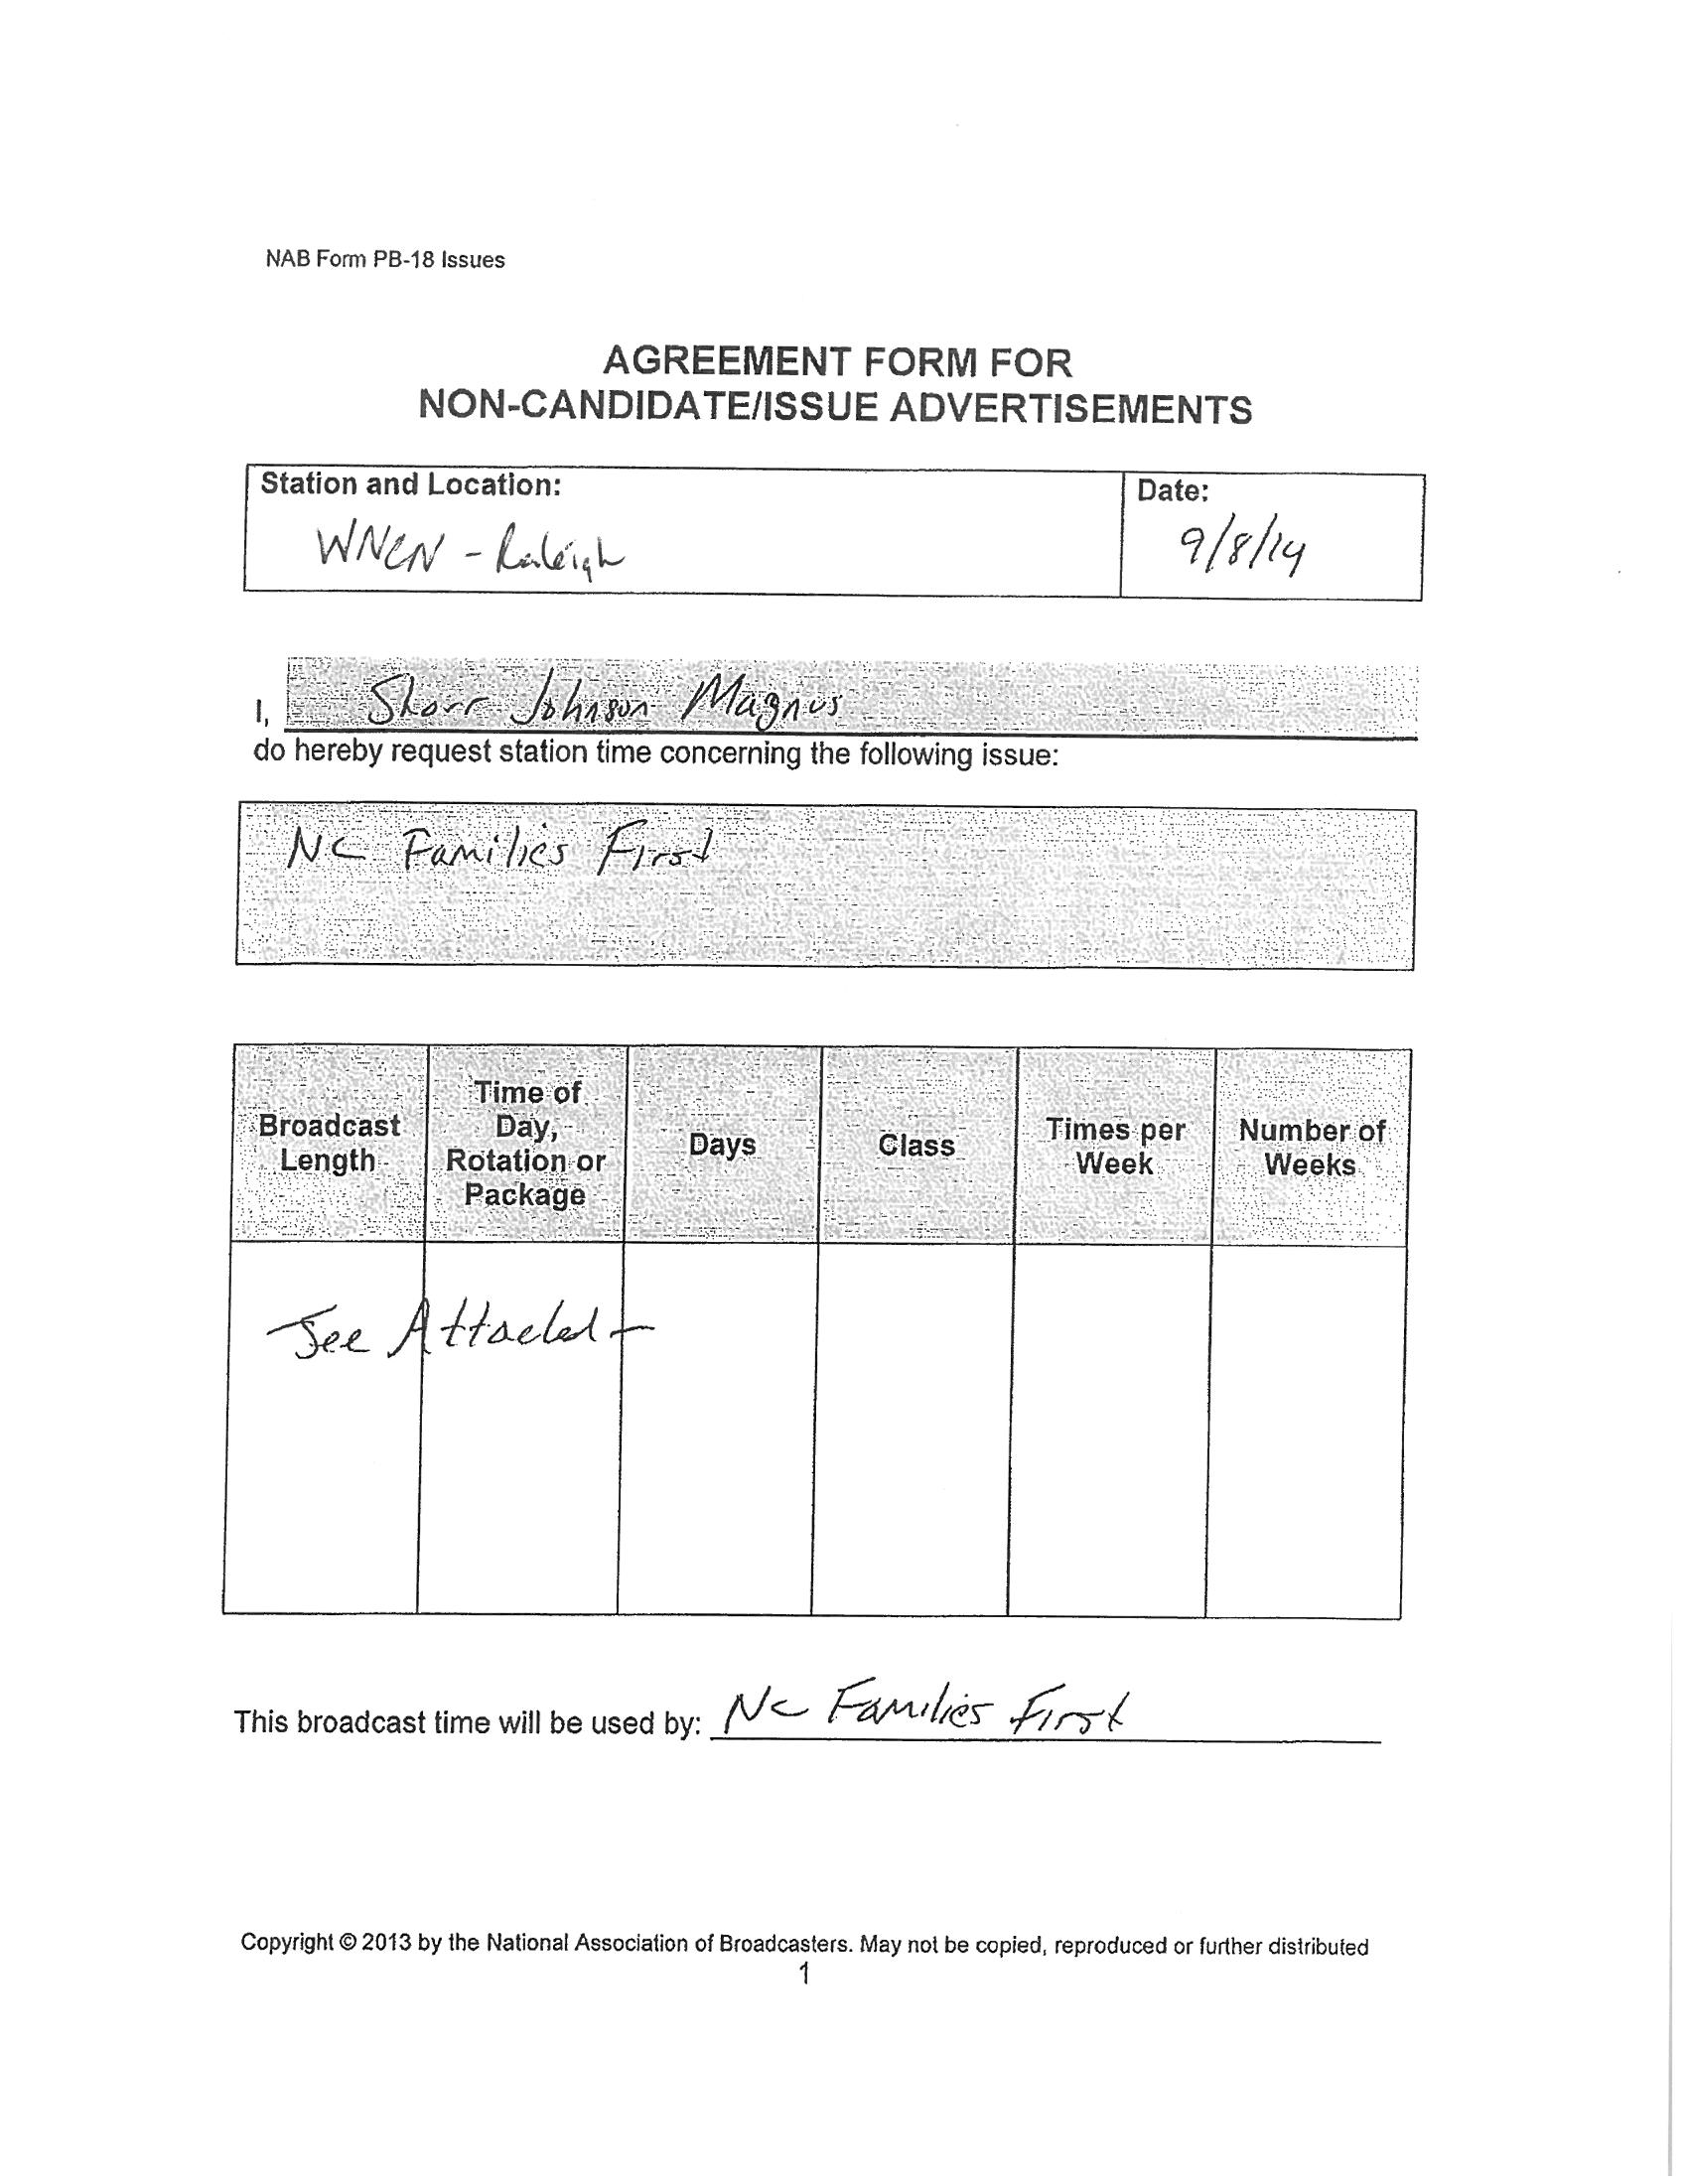 NAB Form PB-18 Issues
AGREEMENT FORM FOR
NON-CANDIDATE/ISSUE ADVERTISEMENTS
Station and Location:
Date:
WNCN - Raleigh
9/8/14
I, Shorr Johnson Magnus
do hereby request station time concerning the following issue:
NC Families First
Broadcast Length
Time of Day, Rotation or Package
Days
Class
Times per Week
Number of Weeks
See Attached -
This broadcast time will be used by: NC Families First
Copyright © 2013 by the National Association of Broadcasters. May not be copied, reproduced or further distributed
1